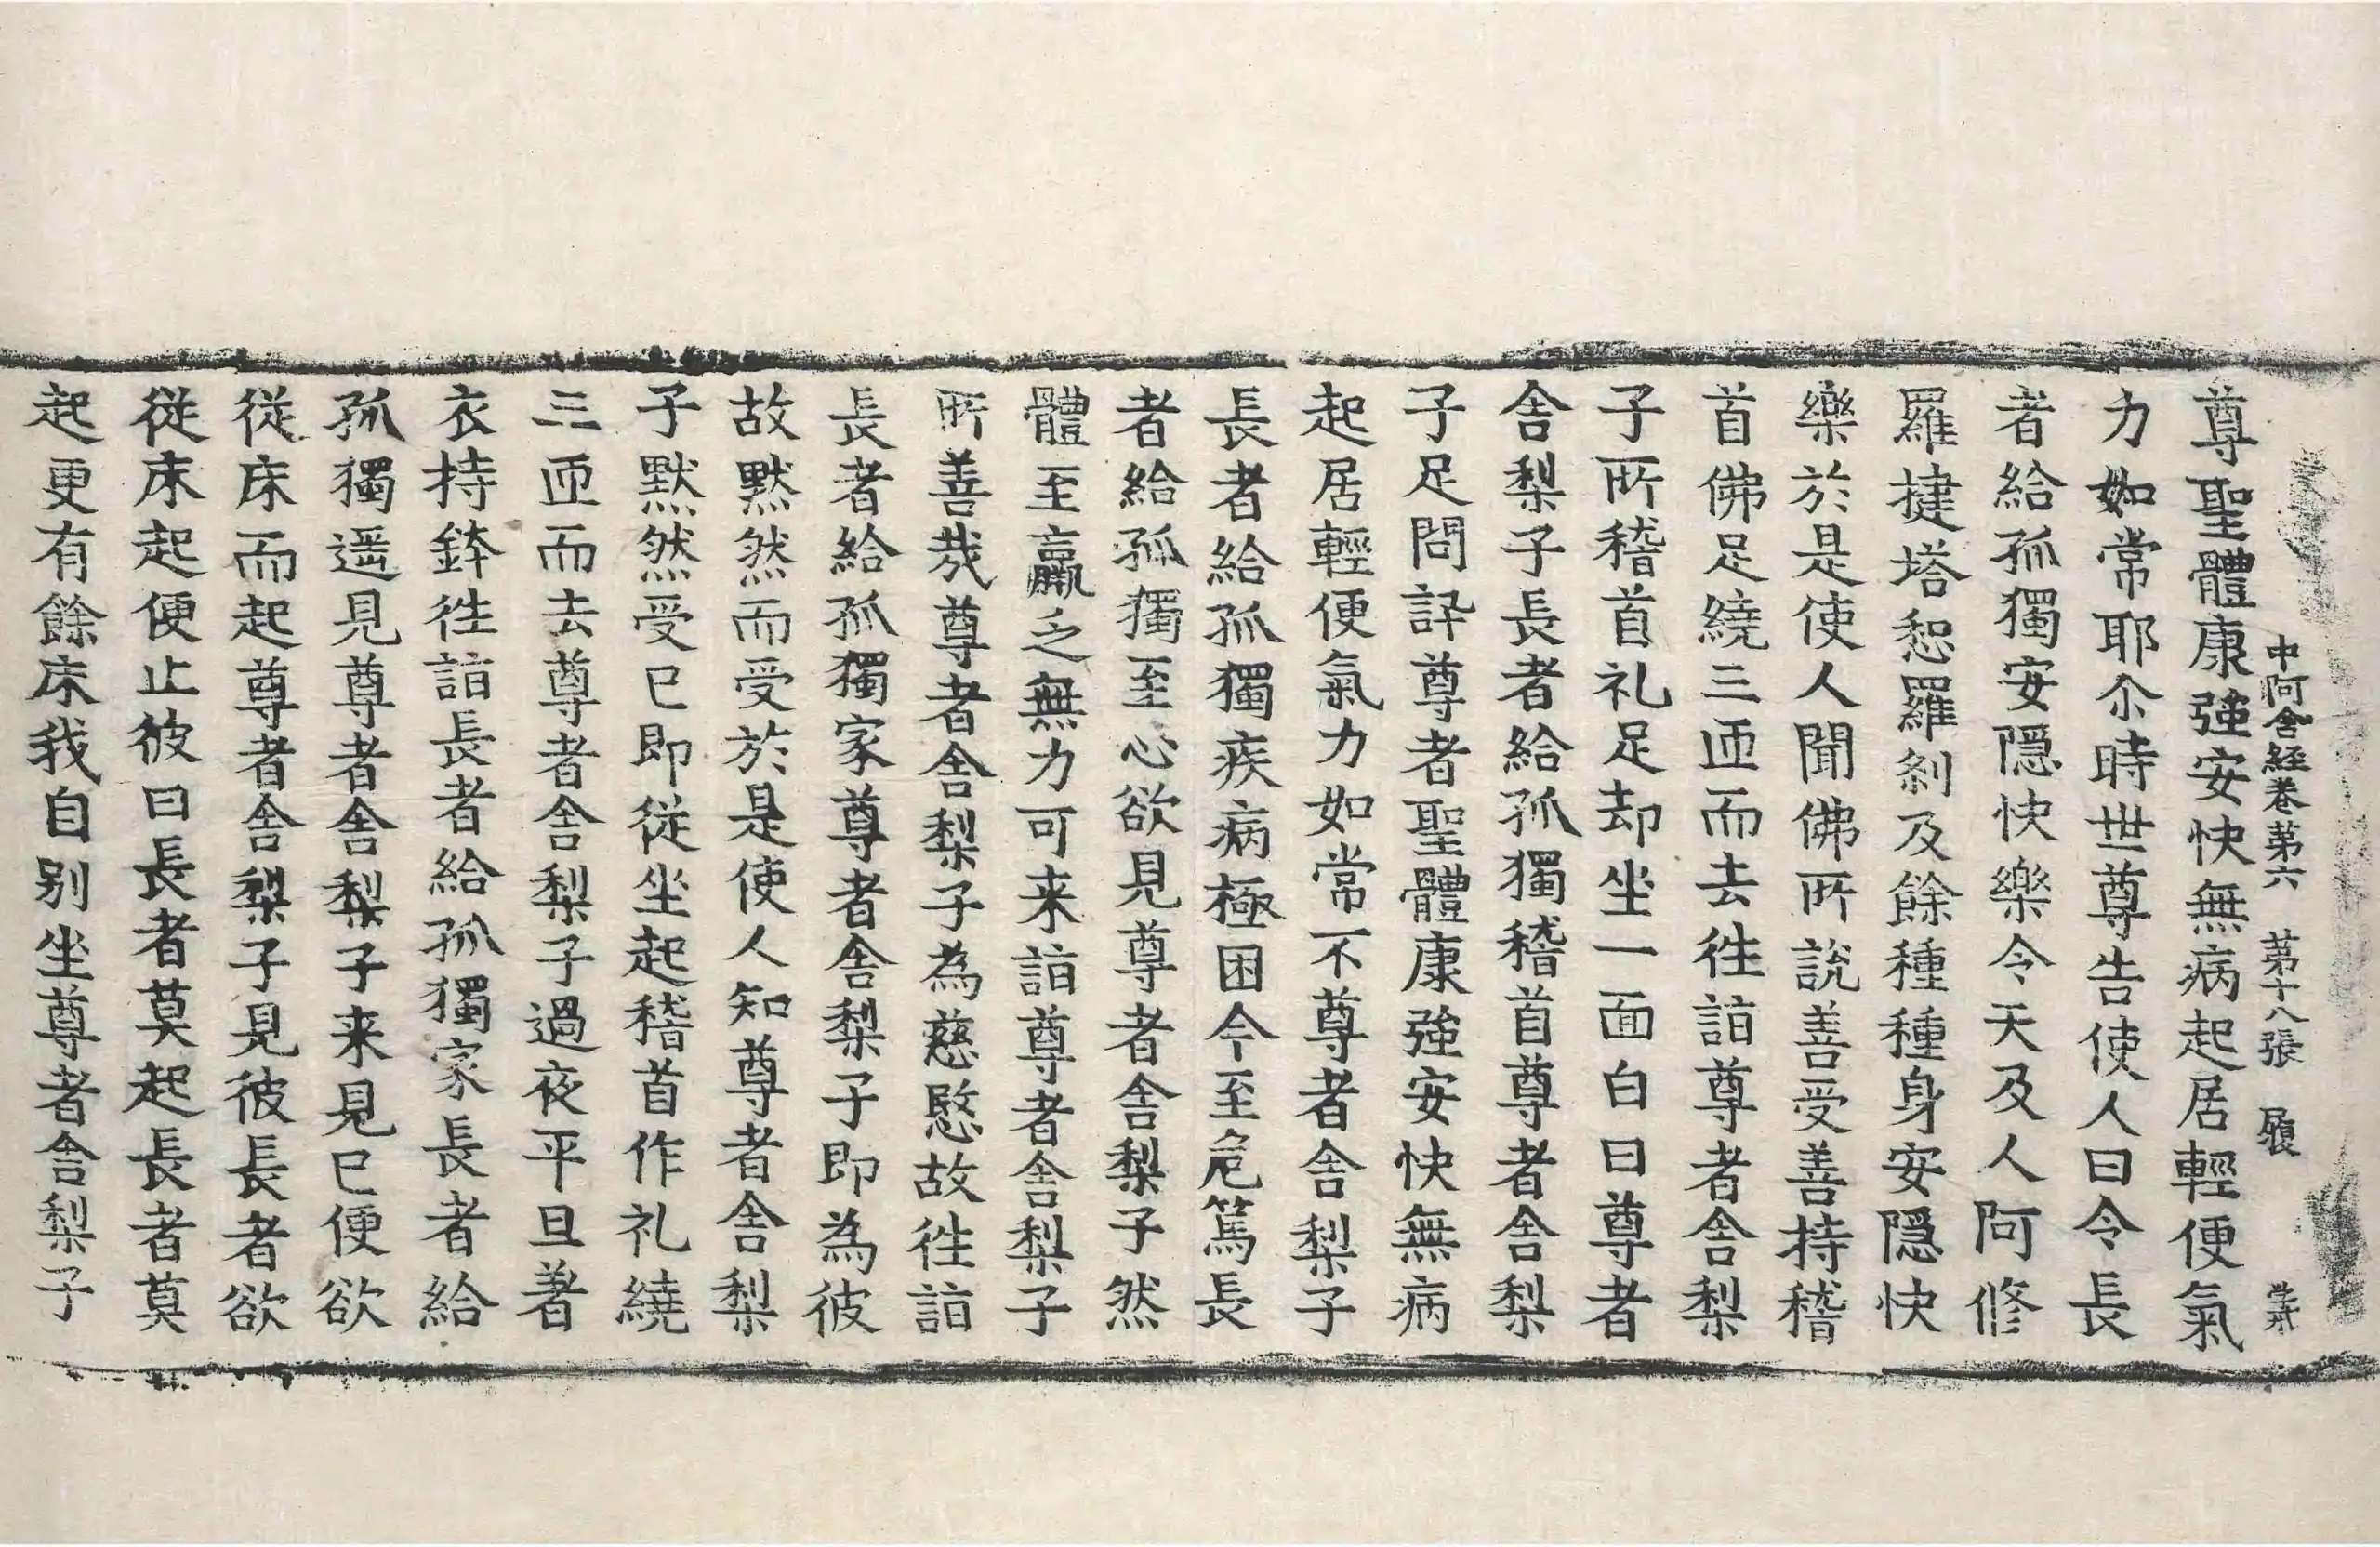 中阿含經卷第六　第十八張　履
尊聖體康強安快無病起居輕便氣
力如常耶尒時世尊告使人曰令長
者給孤獨安隱快樂令天及人阿修
羅揵塔恕羅剎及餘種種身安隱快
樂於是使人聞佛所說善受善持稽
首佛足繞三匝而去往詣尊者舍梨
子所稽首礼足却坐一面白曰尊者
舍梨子長者給孤獨稽首尊者舍梨
子足問訊尊者聖體康強安快無病
起居輕便氣力如常不尊者舍梨子
長者給孤獨疾病極困今至危篤長
者給孤獨至心欲見尊者舍梨子然
體至羸乏無力可来詣尊者舍梨子
所善哉尊者舍梨子為慈愍故往詣
長者給孤獨家尊者舍梨子即為彼
故默然而受於是使人知尊者舍梨
子默然受已即従坐起稽首作礼繞
三匝而去尊者舍梨子過夜平旦著
衣持鉢往詣長者給孤獨家長者給
孤獨遥見尊者舍梨子来見已便欲
従床而起尊者舍梨子見彼長者欲
従床起便止彼曰長者莫起長者莫
起更有餘床我自別坐尊者舍梨子